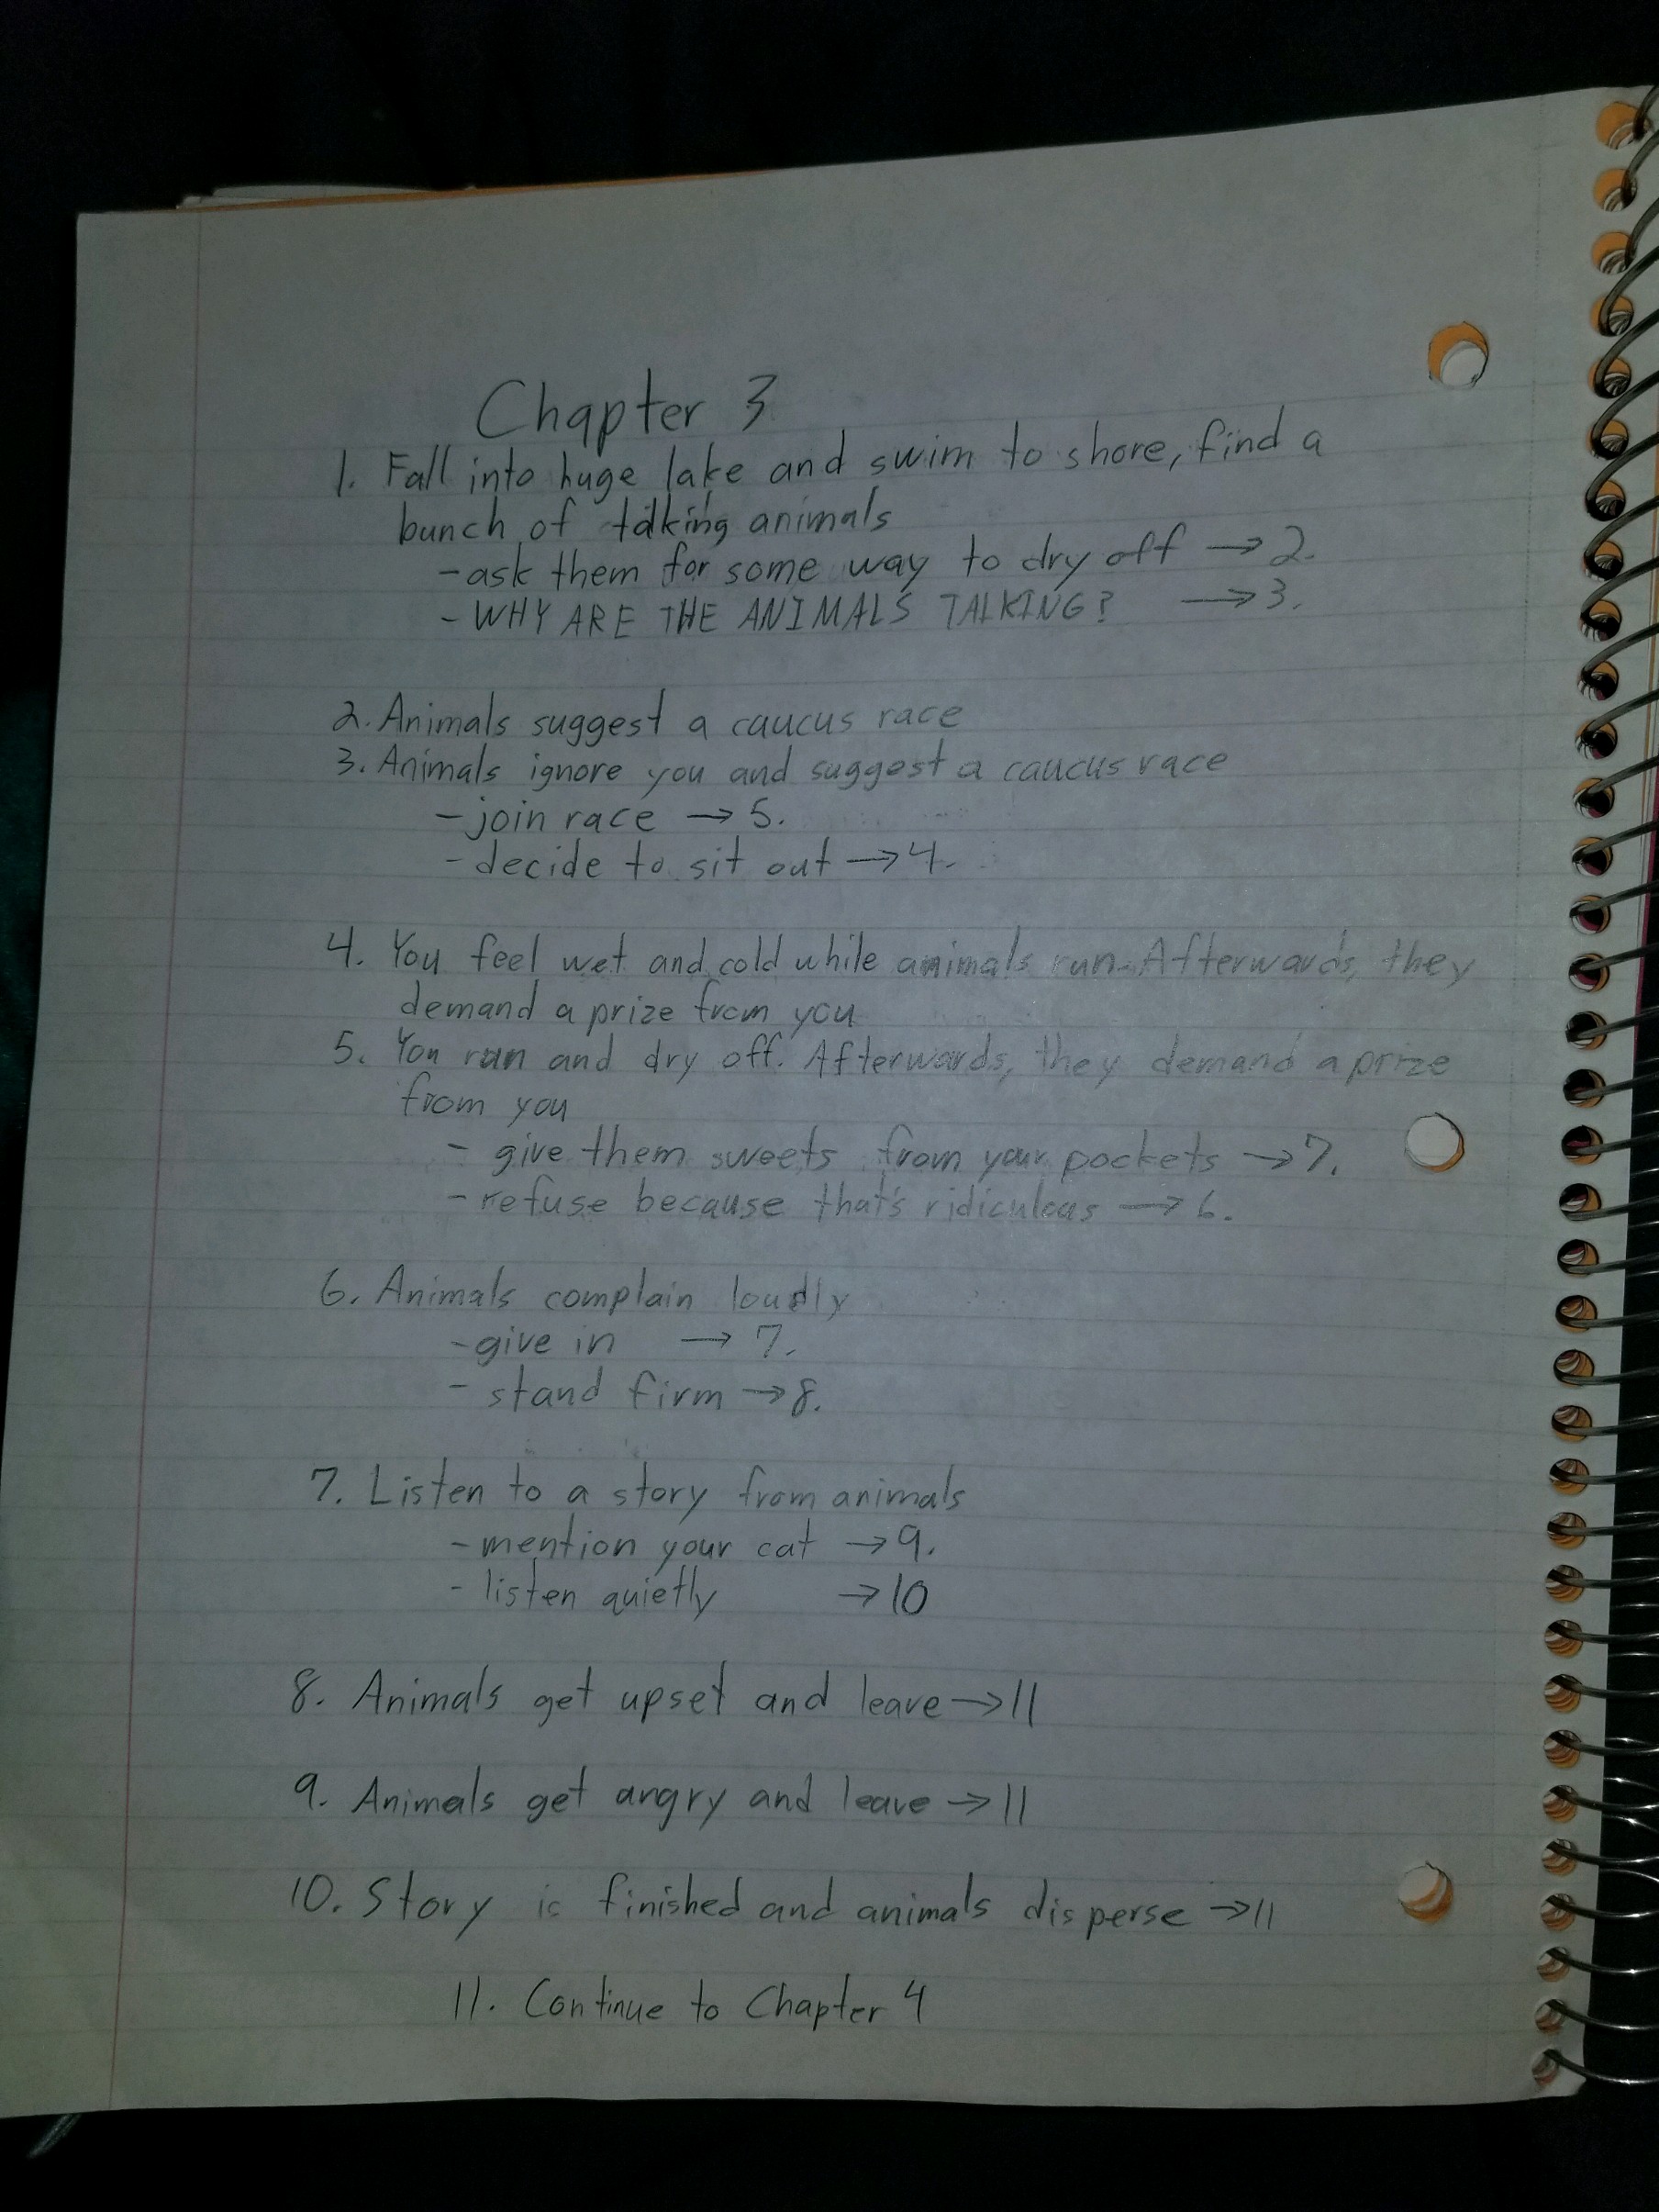 Chapter 3
1. Fall into huge lake and swim to shore, find a
bunch of talking animals
- ask them for some way to dry off → 2.
- WHY ARE THE ANIMALS TALKING? → 3.
2. Animals suggest a caucus race
3. Animals ignore you and suggest a caucus race
- join race → 5.
- decide to sit out → 4.
4. You feel wet and cold while animals run. Afterwards, they
demand a prize from you
5. You run and dry off. Afterwards, they demand a prize
from you
- give them sweets from your pockets → 7.
- refuse because that's ridiculous → 6.
6. Animals complain loudly
- give in → 7.
- stand firm → 8.
7. Listen to a story from animals
- mention your cat → 9.
- listen quietly → 10
8. Animals get upset and leave → 11
9. Animals get angry and leave → 11
10. Story is finished and animals disperse → 11
11. Continue to Chapter 4